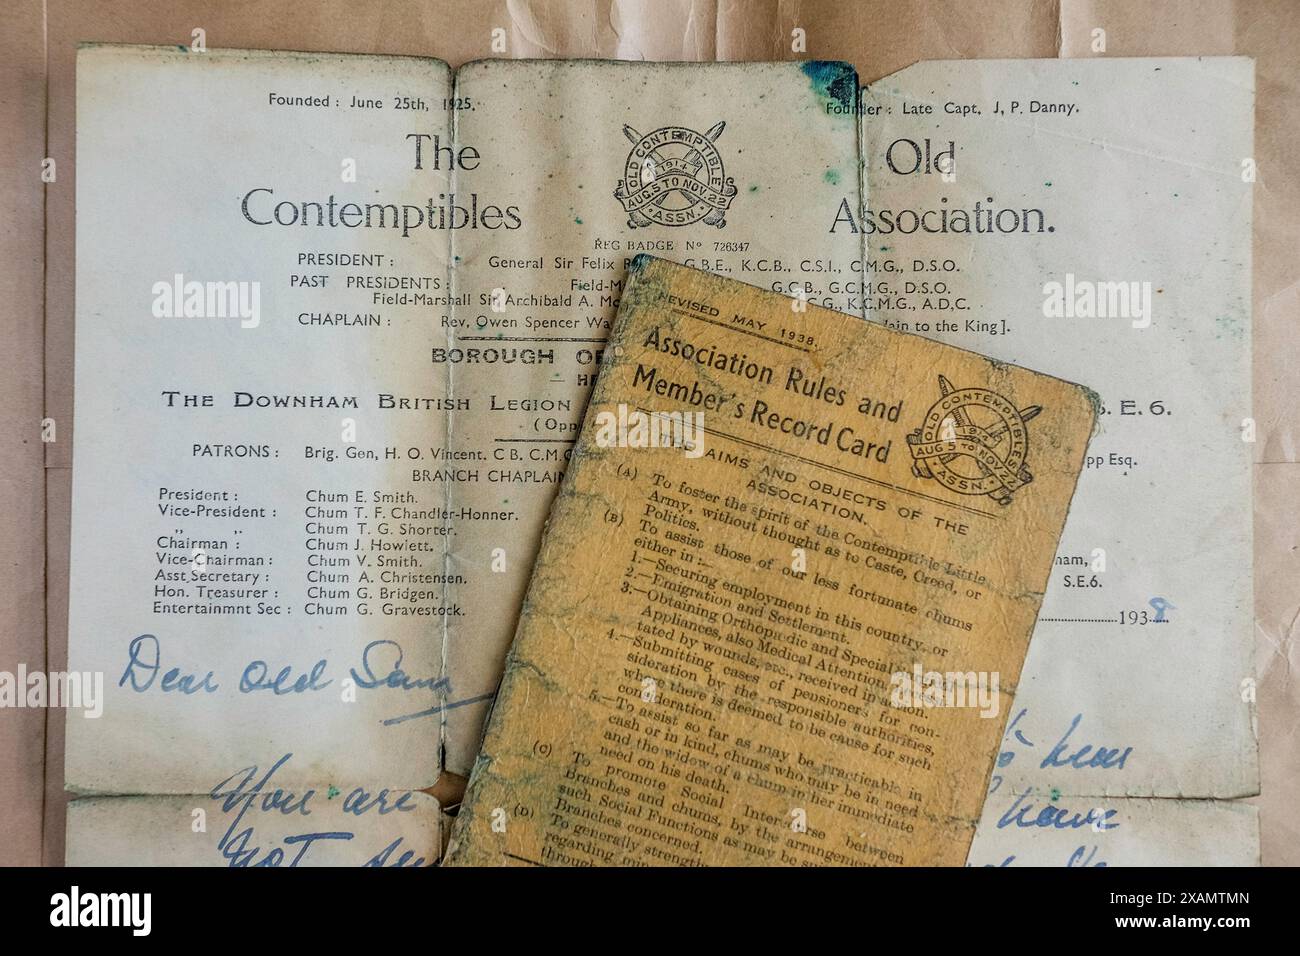 Founded : June 25th, 1925.
Founder : Late Capt. J, P. Danny.
The Old
Contemptibles Association.
OLD CONTEMPTIBLE
1914
AUG. 5 TO NOV. 22
ASSN.
REG BADGE No 726347
PRESIDENT : General Sir Felix G.B.E., K.C.B., C.S.I., C.M.G., D.S.O.
PAST PRESIDENTS : G.C.B., G.C.M.G., D.S.O.
Field-Marshall Sir Archibald A. K.C.M.G., A.D.C.
CHAPLAIN : Rev, Owen Spencer to the King].
BOROUGH
THE DOWNHAM BRITISH LEGION S. E. 6.
(Opp
PATRONS : Brig. Gen, H. O. Vincent, C B, C.M.G Esq.
BRANCH CHAPLAIN
President : Chum E. Smith.
Vice-President : Chum T. F. Chandler-Honner.
,, ,, Chum T. G. Shorter.
Chairman : Chum J. Howlett.
Vice-Chairman : Chum V. Smith.
Asst Secretary : Chum A. Christensen. S.E.6.
Hon. Treasurer : Chum G. Bridgen.
Entertainmnt Sec : Chum G. Gravestock.
1938
Dear Old Sam
You are
not
hear
have
REVISED MAY 1938.
Association Rules and
Member's Record Card
OLD CONTEMPTIBLE
1914
AUG 5 TO NOV. 22
ASSN.
THE AIMS AND OBJECTS OF THE
ASSOCIATION.
(A) To foster the spirit of the Contemptible Little
Army, without thought as to Caste, Creed, or
Politics.
(B) To assist those of our less fortunate chums
either in :—
1.—Securing employment in this country, or
2.—Emigration and Settlement.
3.—Obtaining Orthopædic and Special Surgical
Appliances, also Medical Attention,
tated by wounds, etc., received in action.
4.—Submitting cases of pensioners for con-
sideration by the responsible authorities,
where there is deemed to be cause for such
consideration.
5.—To assist so far as may be practicable in
cash or in kind, chums who may be in need
and the widow of a chum in her immediate
need on his death.
(C) To promote Social Intercourse between
Branches and chums, by the arrangement
such Social Functions as may be
Branches concerned.
(D) To generally strengthen
regarding
through